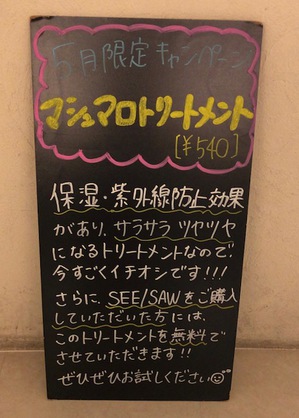 5月限定キャンペーン
マシュマロトリートメント
[¥540]
保湿・紫外線防止効果
があり、サラサラ ツヤツヤ
になるトリートメントなので
今すごくイチオシです!!!
さらに、SEE/SAWをご購入
していただいた方には、
このトリートメントを無料で
させていただきます!!
ぜひぜひお試しください